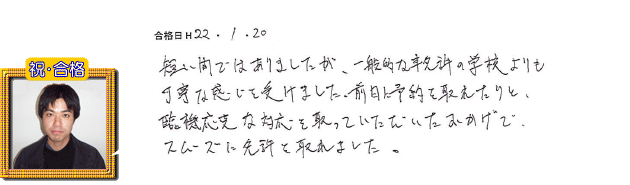 合格日 H 22 . 1 . 20
祝・合格
短い間ではありましたが、一般的な車免許の学校よりも
丁寧な感じを受けました。前日に予約を取れたりと、
臨機応変な対応を取っていただいたおかげで、
スムーズに免許を取れました。